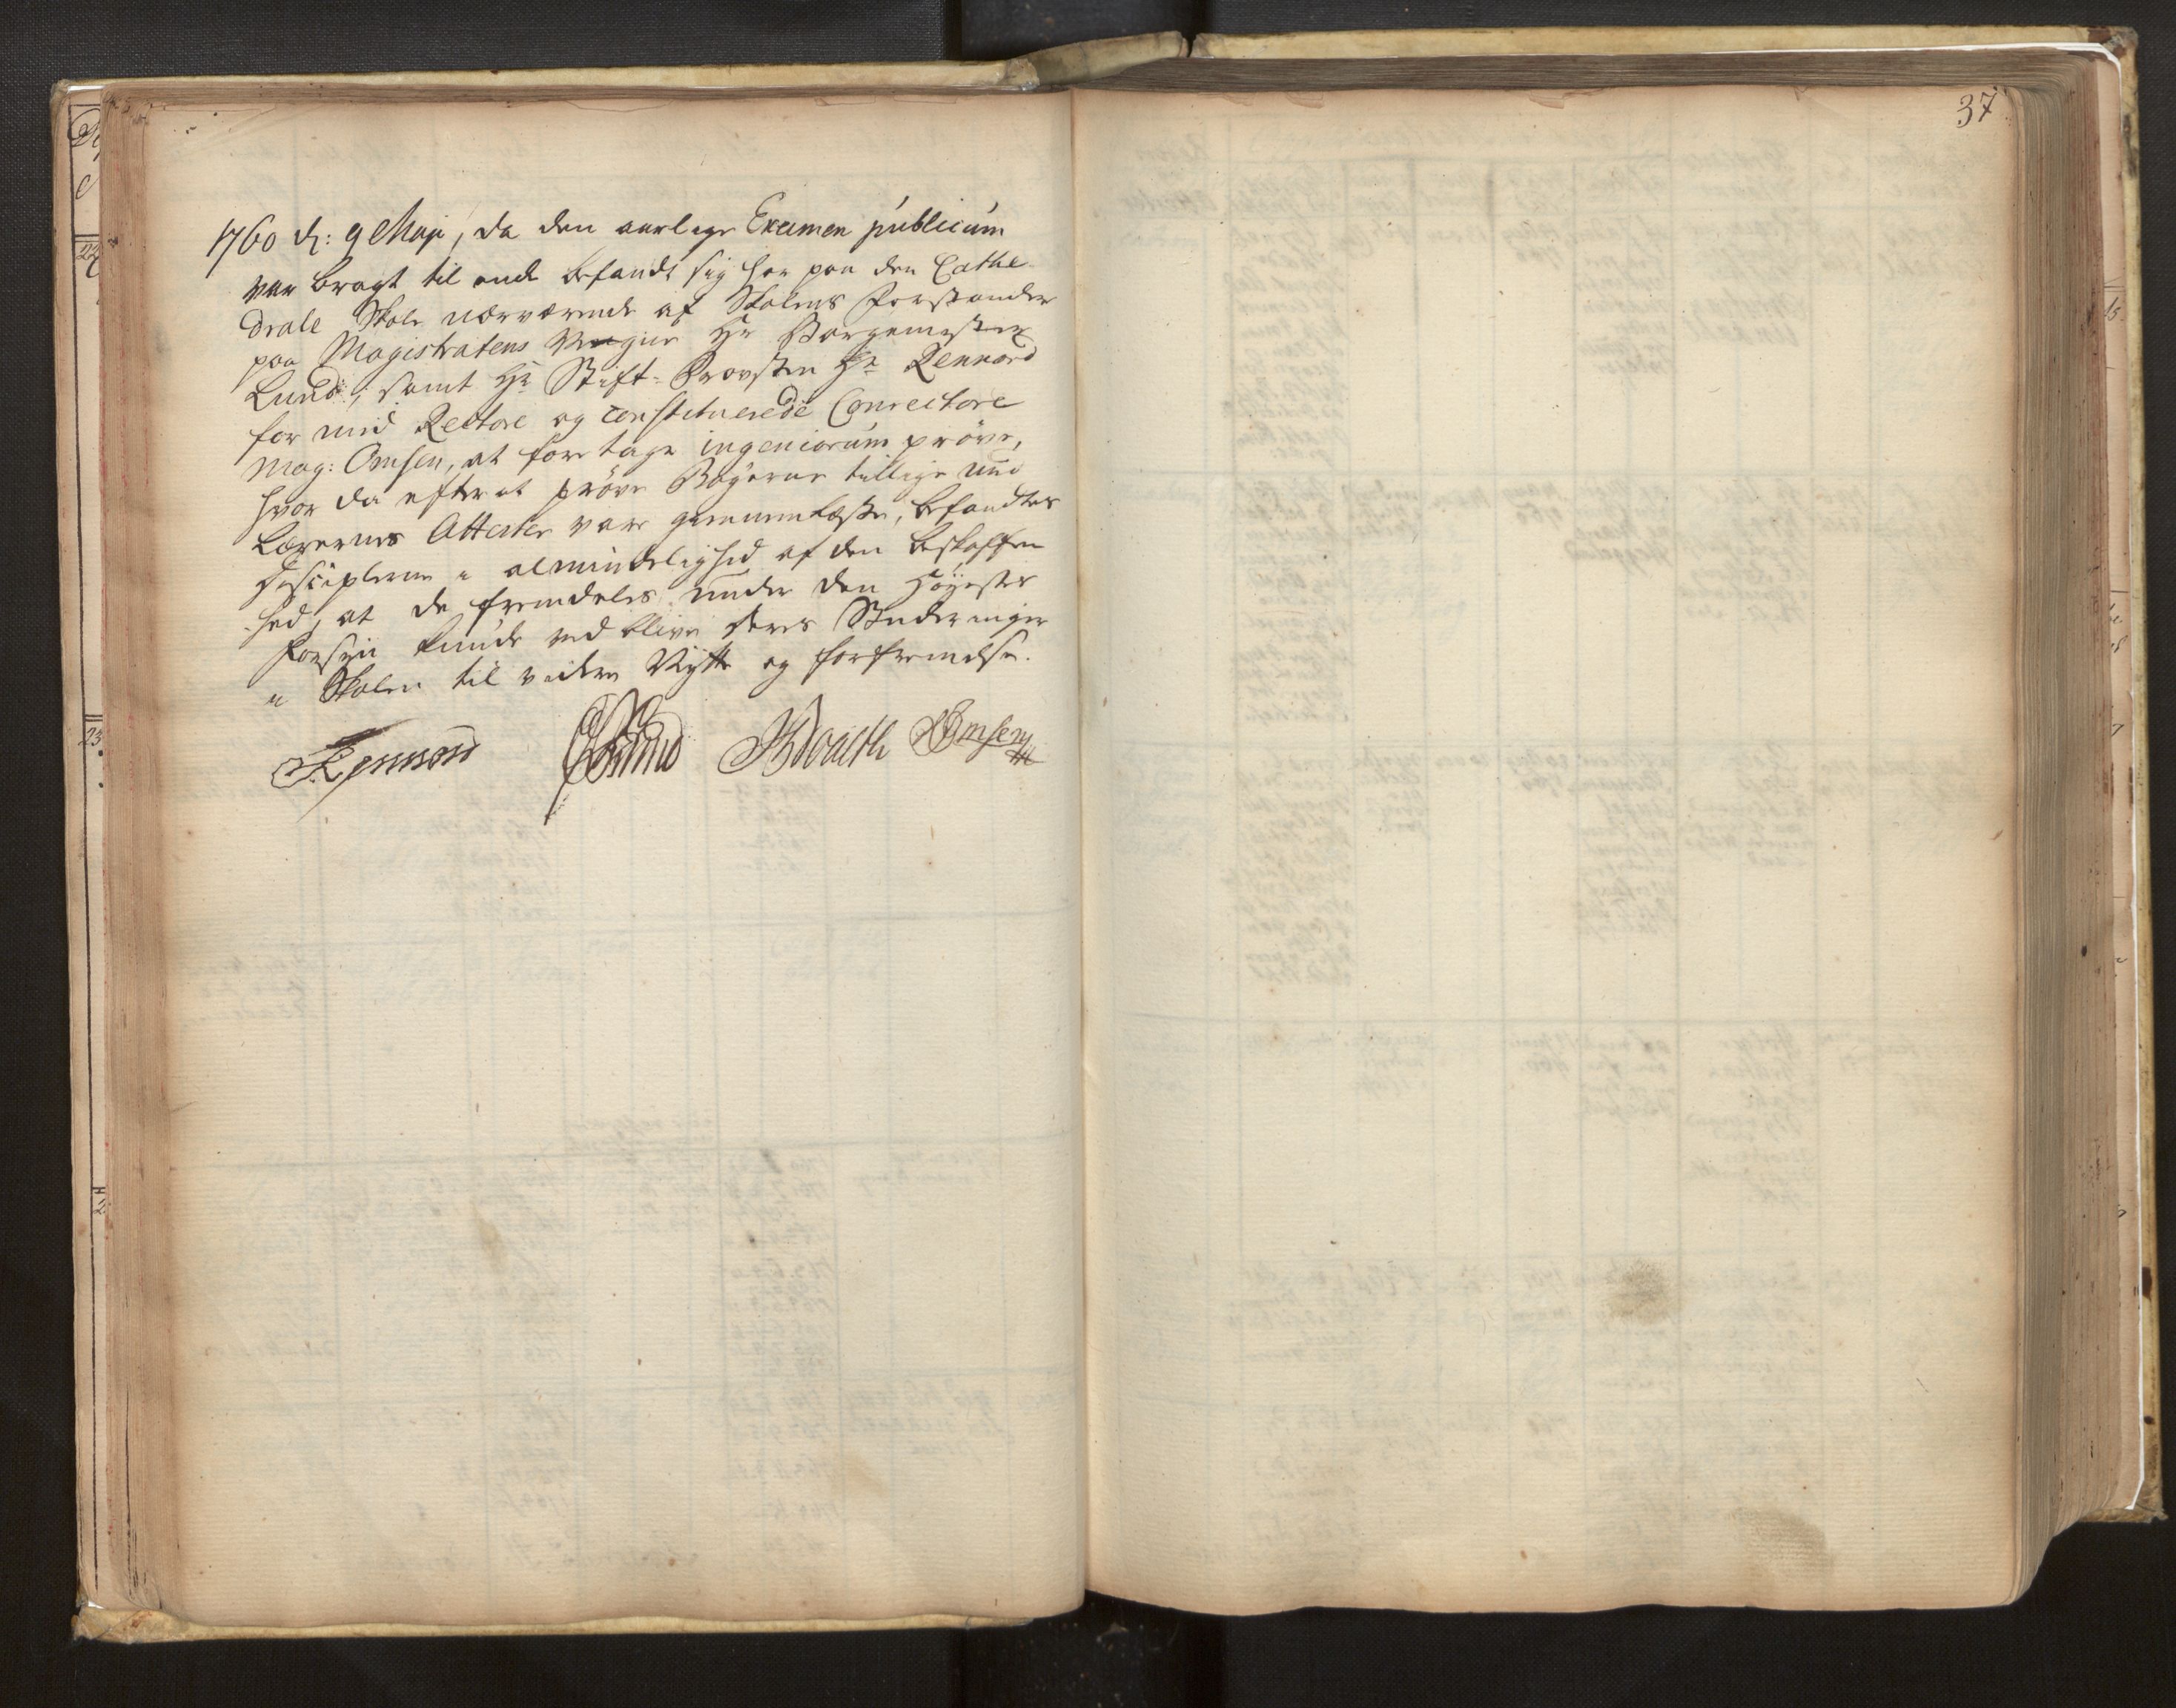 37
1760 d: 9 Maji, da den aarlige Examen publicum
var bragt til ende befandt sig her paa den Cathe
drale Skole nærværende af Skolens Forstander
paa Magistratens Vegne Hr Borgemester
Lund, samt Hr Stift-Provsten Hr Rennord
for med Rectore og constituerede Conrectore
Mag: Omsen, at foretage ingeniorum prøve,
hvor da efter at prøve Bøgerne tillige med
Lærernes Attester vare giennemlæste, befandtes
Disciplerne i almindelighed af den beskaffen
hed, at de fremdeles under den Høyestes
Forsyn kunde vedblive deres Studeringer
i Skolen til videre Nytte og forfremmelse.
Rennord Lund Omsen